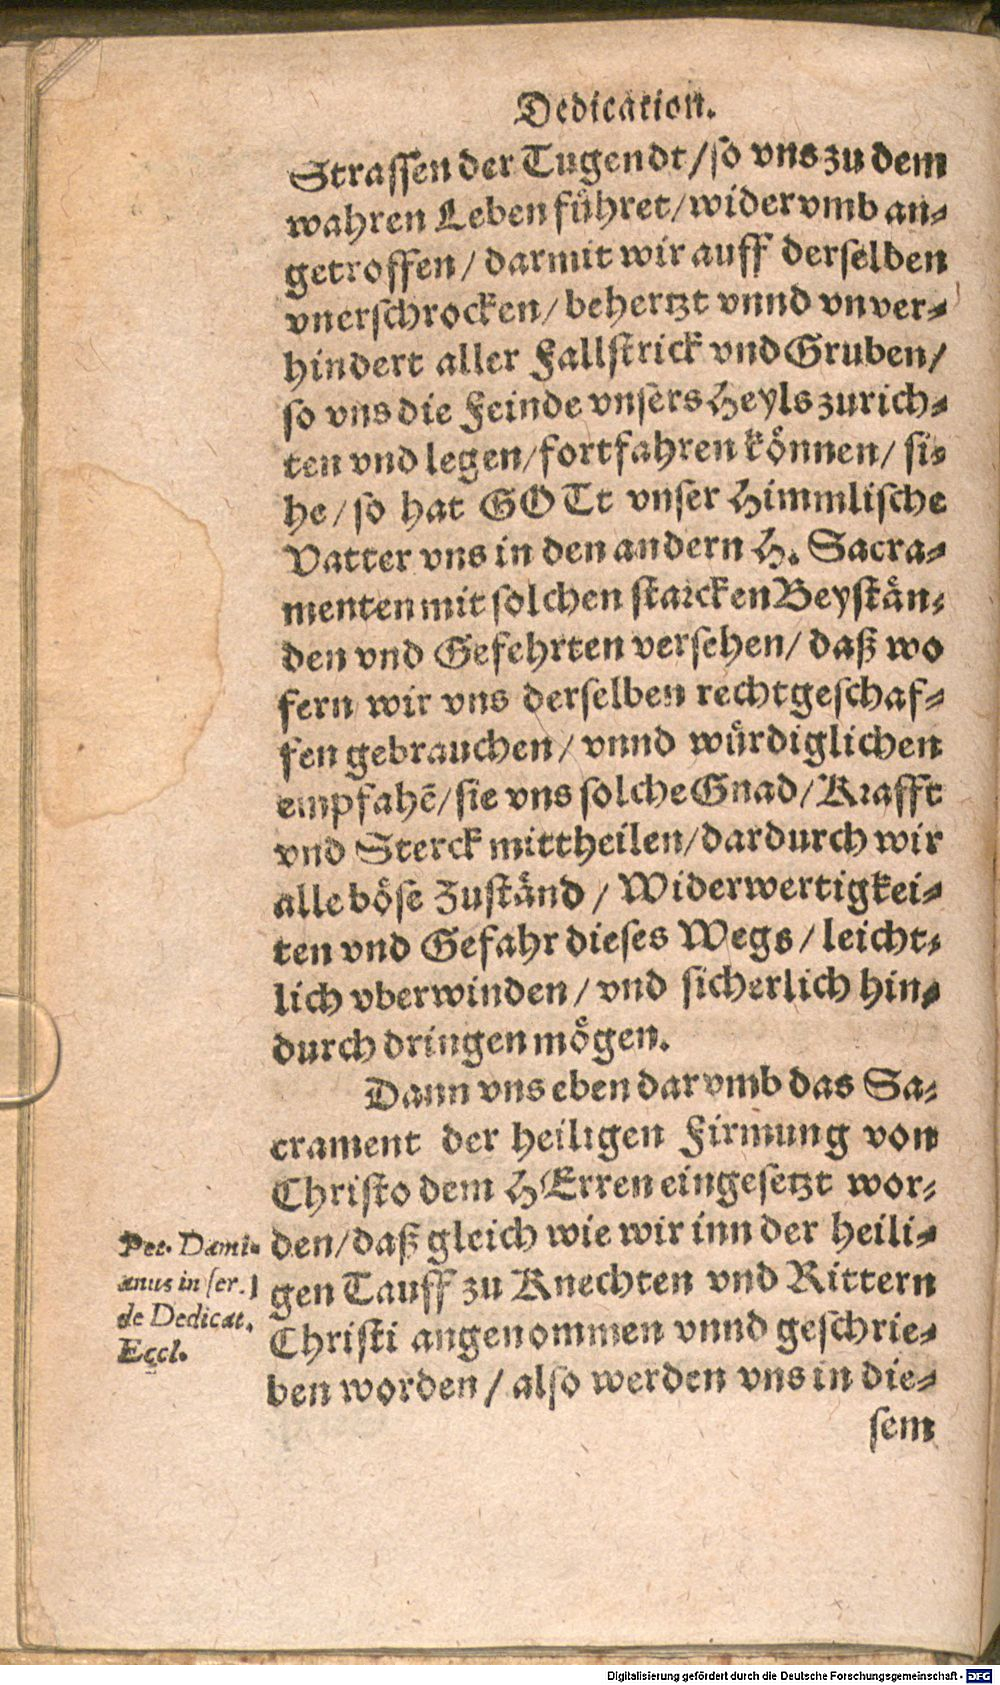 Dedication.
Straſſen der Tugendt/ſo vns zu dem
wahren Leben fuͤhret/widervmb an-
getroffen/ darmit wir auff derſelben
vnerſchrocken/ behertzt vnnd vnver-
hindert aller Fallſtrick vnd Gruben/
ſo vns die Feinde vnſers Heyls zurich-
ten vnd legen/fortfahren koͤnnen/ ſi-
he/ſo hat GOTt vnſer Himmliſche
Vatter vns in den andern H. Sacra-
menten mit ſolchen ſtarcken Beyſtaͤn-
den vnd Gefehrten verſehen/ daß wo
fern wir vns derſelben rechtgeſchaf-
fen gebrauchen/ vnnd wuͤrdiglichen
empfahẽ/ſie vns ſolche Gnad/Krafft
vnd Sterck mittheilen/dardurch wir
alle boͤſe Zuſtaͤnd / Widerwertigkei-
ten vnd Gefahr dieſes Wegs/leicht-
lich vberwinden/vnd ſicherlich hin-
durch dringen moͤgen.
Dann vns eben darvmb das Sa-
crament der heiligen Firmung von
Chriſto dem HErren eingeſetzt wor-
den/daß gleich wie wir inn der heili-
gen Tauff zu Knechten vnd Rittern
Chriſti angenommen vnnd geſchrie-
ben worden/alſo werden vns in die-
ſem
Pet. Dami-
anus in ſer. 1
de Dedicat.
Eccl.
Digitalisierung gefördert durch die Deutsche Forschungsgemeinschaft - DFG